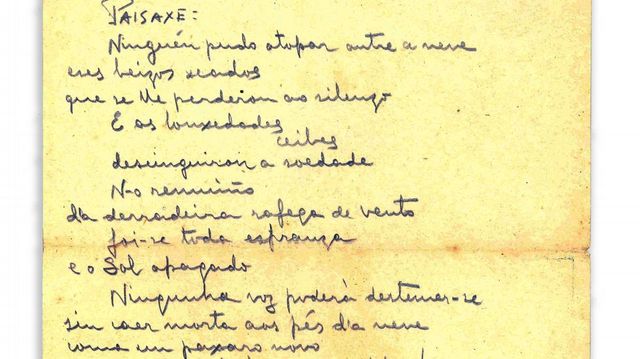 PAISAXE:
Ninguén pudo atopar antre a neve
eses beizos xeados
que se lle perderon ao silenzo
E as louxedades
ceibes
descinguiron a soedade
N-o remuiño
d'a derradeira rafega de vento
foi-se toda espranza
e o Sol apagado
Ningunha voz poderá destemer-se
sin caer morta aos pés d'a neve
coma un paxaro novo